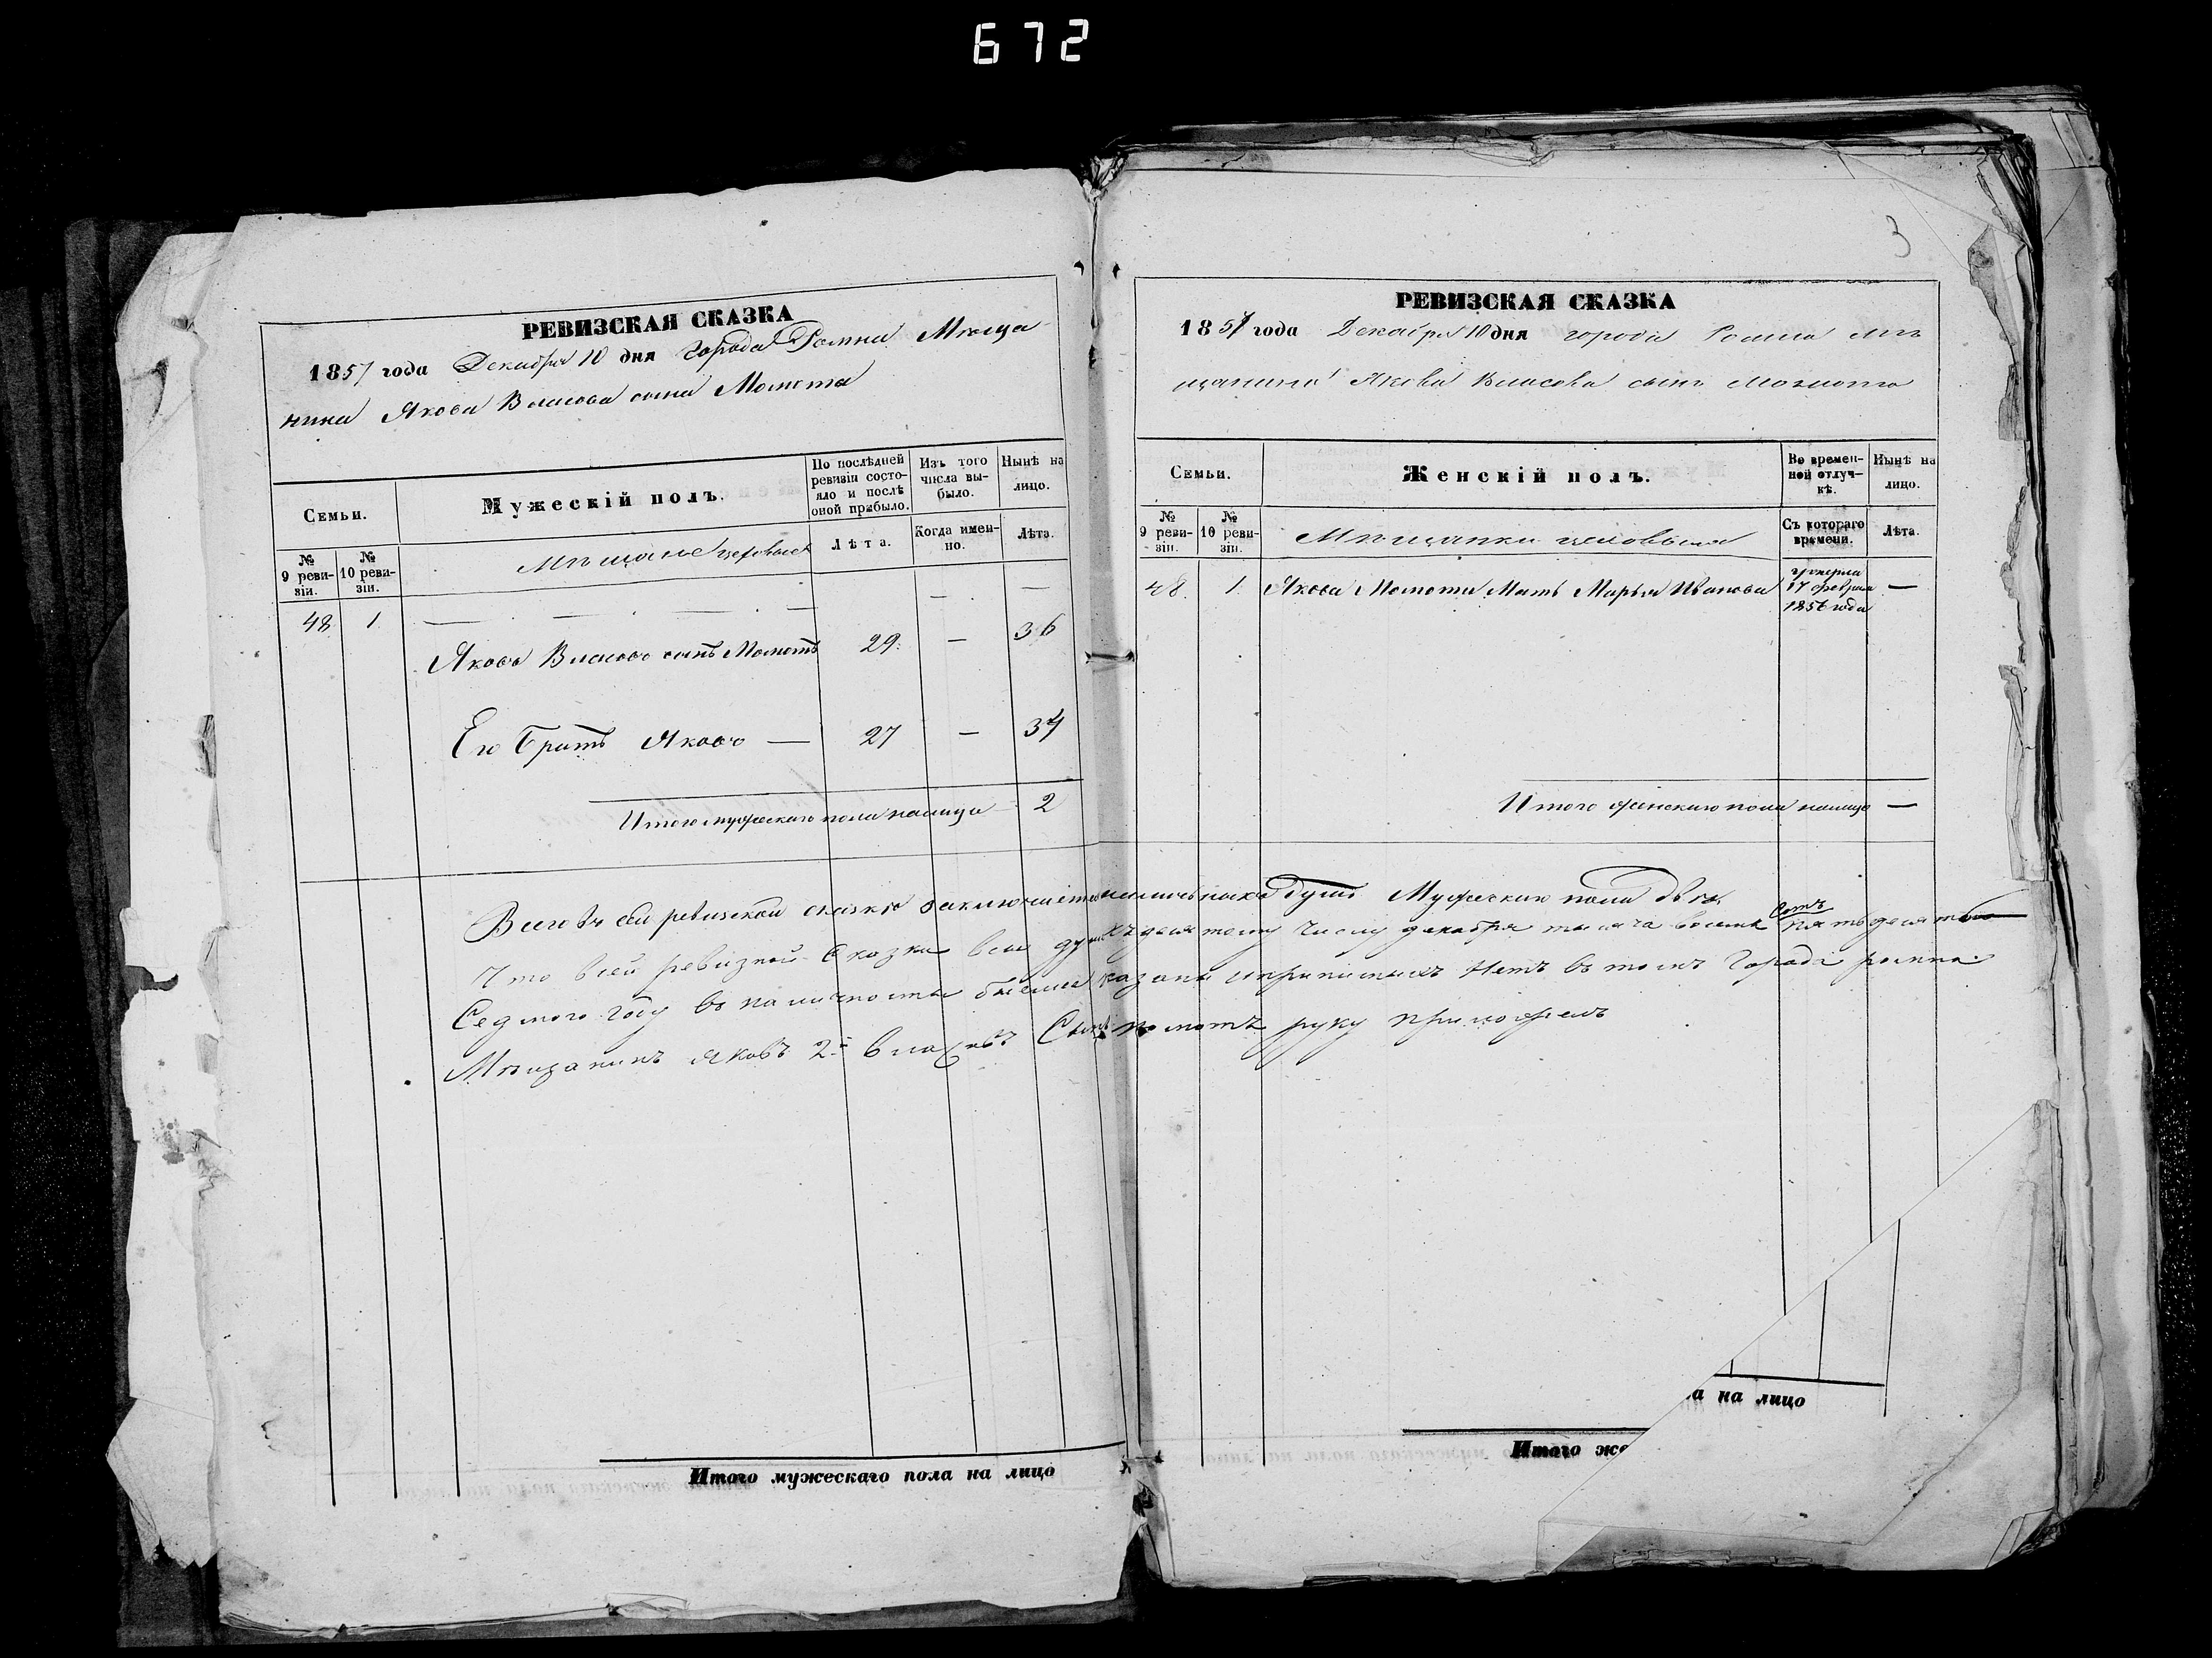 672
РЕВИЗСКАЯ СКАЗКА
1857 года Декабря 10 дня Города Ромна Мѣща
нина Якова Власова сына Момота
Семьи.
Мужескій полъ.
По послѣдней ревизіи состояло и послѣ оной прибыло.
Изъ того числа выбыло.
Нынѣ на лицо.
№ 9 ревизіи.
№ 10 ревизіи.
Мѣщане
Лѣта.
Когда именно.
Лѣта.
48 1
Яковъ Власовъ сынъ Момотъ 29. — 36
Его Братъ Яковъ — 27 — 34
Итого мужескаго пола налицо 2
Итого мужескаго пола на лицо
3
РЕВИЗСКАЯ СКАЗКА
1857 года Декабря 10 дня города Ромна мѣ
щанина Якова Власова сына Момота
Семьи.
Женскій полъ.
Во временной отлучкѣ.
Нынѣ на лицо.
№ 9 ревизіи.
№ 10 ревизіи.
Мѣщанки
Съ котораго времени.
Лѣта.
48. 1. Якова Момота Мать Марья Иванова умерла 17 февраля 1856 года —
Итого женскаго пола налицо —
Всего въ сей ревизской сказкѣ заключается душъ Мужескаго пола двѣ
Что всей ревизкой Сказки все душ къ десятому числу декабря тысяча восемь сотъ пятьдесят
Седмого году въ наличности показаны и прописныхъ Нетъ въ томъ Города ромна
Мѣщанинъ яковъ 2й власовъ Сынъ момотъ руку приложелъ
Итого же
а на лицо